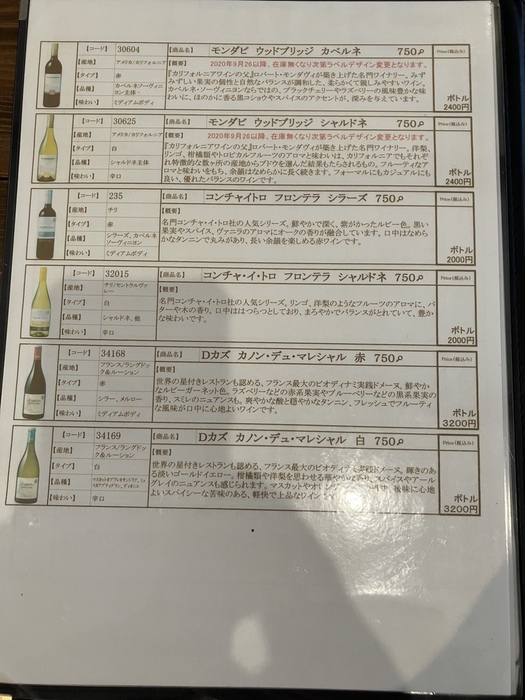 【コード】 30604 【商品名】 モンダビ ウッドブリッジ カベルネ 750㎖ Price(税込み)
【産地】 アメリカ/カリフォルニア 【概要】 2020年9月26以降、在庫無くなり次第ラベルデザイン変更となります。
【タイプ】 赤
【品種】 カベルネ・ソーヴィニヨン主体
【味わい】 ミディアムボディ
『カリフォルニアワインの父』ロバート・モンダヴィが築き上げた名門ワイナリー。みずみずしい果実の個性と自然なバランスが調和した、柔らかくて親しみやすいワイン。
カベルネ・ソーヴィニヨンならではの、ブラックチェリーやラズベリーの風味豊かな味わいに、ほのかに香る黒コショウやスパイスのアクセントが、深みを与えています。
ボトル
2400円
【コード】 30625 【商品名】 モンダビ ウッドブリッジ シャルドネ 750㎖ Price(税込み)
【産地】 アメリカ/カリフォルニア 【概要】 2020年9月26以降、在庫無くなり次第ラベルデザイン変更となります。
【タイプ】 白
【品種】 シャルドネ主体
【味わい】 辛口
『カリフォルニアワインの父』ロバート・モンダヴィが築き上げた名門ワイナリー。洋梨、
リンゴ、柑橘類やトロピカルフルーツのアロマと味わいは、カリフォルニアでもそれぞれ特徴的な数ヶ所の産地からブドウを選んだ結果もたらされるもの。フルーティなアロマと味わいをもち、余韻はなめらかに長く続きます。フォーマルにもカジュアルにも良い、優れたバランスのワインです。
ボトル
2400円
【コード】 235 【商品名】 コンチャイトロ フロンテラ シラーズ 750㎖ Price(税込み)
【産地】 チリ 【概要】
【タイプ】 赤
【品種】 シラーズ、カベルネ・ソーヴィニヨン
【味わい】 ミディアムボディ
名門コンチャ・イ・トロ社の人気シリーズ。鮮やかで深く、紫がかったルビー色。黒い果実やスパイス、ヴァニラのアロマにオークの香りが融合しています。口中はなめらかなタンニンで丸みがあり、長い余韻を楽しめる赤ワインです。
ボトル
2000円
【コード】 32015 【商品名】 コンチャ・イ・トロ フロンテラ シャルドネ 750㎖ Price(税込み)
【産地】 チリ/セントラルヴァレー 【概要】
【タイプ】 白
【品種】 シャルドネ、他
【味わい】 辛口
名門コンチャ・イ・トロ社の人気シリーズ。リンゴ、洋梨のようなフルーツのアロマに、バターや木の香り。口中ははつらつとしており、まろやかでバランスがとれていて、豊かな味わいです。
ボトル
2000円
【コード】 34168 【商品名】 Dカズ カノン・デュ・マレシャル 赤 750㎖ Price(税込み)
【産地】 フランス/ラングドック&ルーション 【概要】
【タイプ】 赤
【品種】 シラー、メルロー
【味わい】 ミディアムボディ
世界の星付きレストランも認める、フランス最大のビオディナミ実践ドメーヌ。鮮やかなルビーガーネット色。ラズベリーなどの赤系果実やブルーベリーなどの黒系果実の香り、スミレのニュアンスも。爽やかな酸と穏やかなタンニン、フレッシュでフルーティな風味が口中に心地よいワインです。
ボトル
3200円
【コード】 34169 【商品名】 Dカズ カノン・デュ・マレシャル 白 750㎖ Price(税込み)
【産地】 フランス/ラングドック&ルーション 【概要】
【タイプ】 白
【品種】
【味わい】 辛口
世界の星付きレストランも認める、フランス最大のビオディナミ実践ドメーヌ。輝きのある淡いゴールドイエロー。柑橘類や洋梨を思わせる華やかな香り。スパイスやアールグレイのニュアンスも感じられます。マスカットや
後味に心地よいスパイシーな苦味のある、軽快で上品なワイン
ボトル
3200円